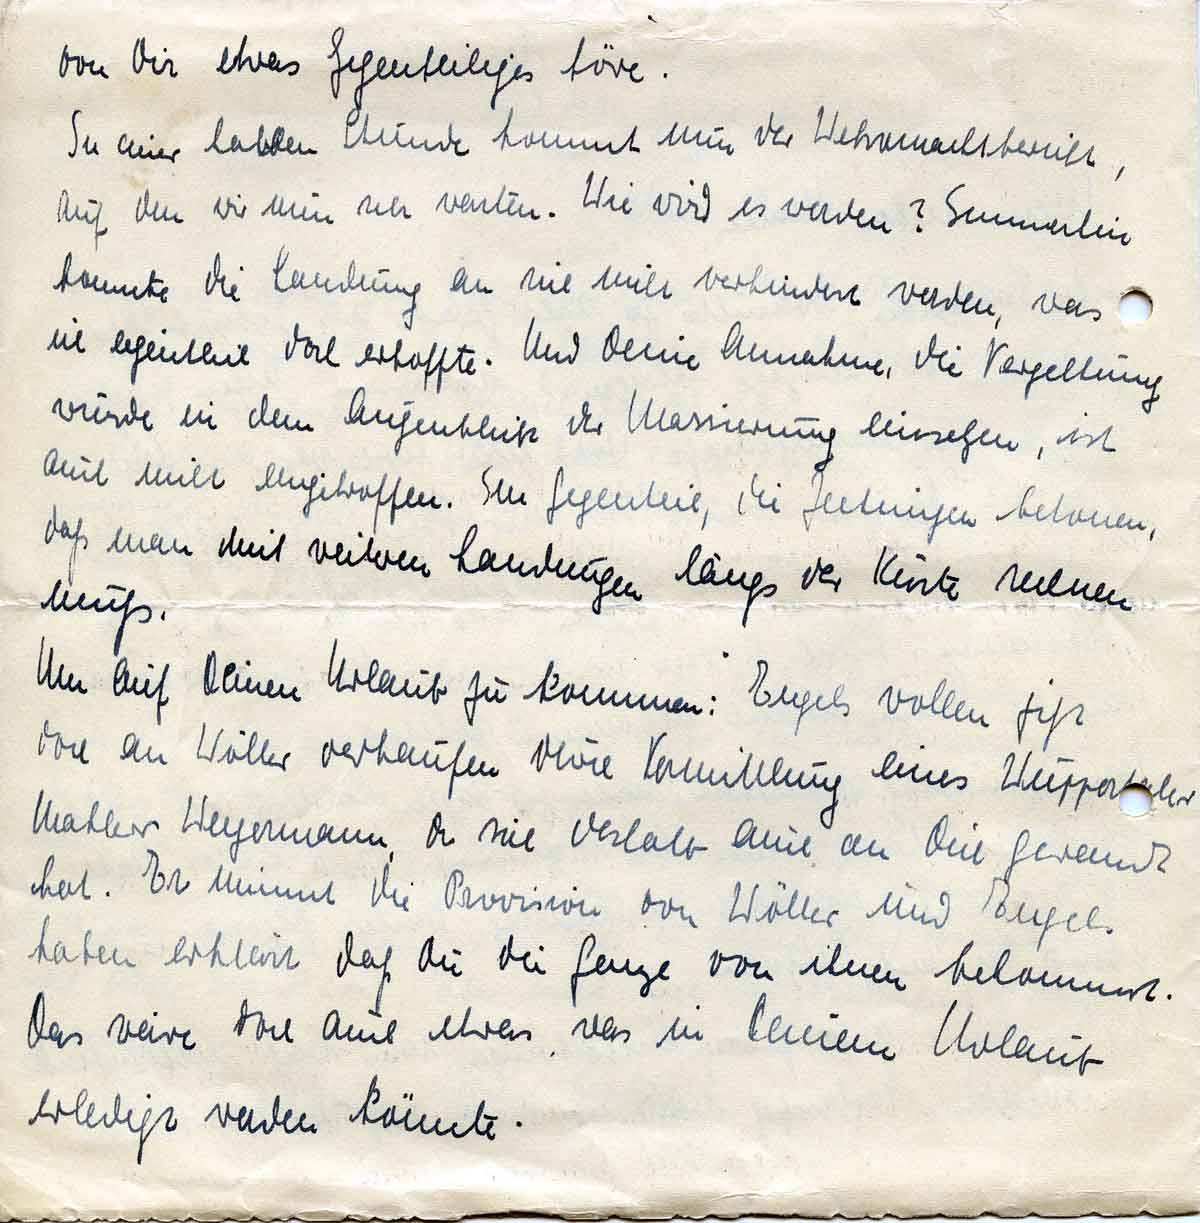 von Dir etwas Gegenteiliges höre.
In einer halben Stunde kommt nun der Wehrmachtsbericht,
auf den wir nun warten. Wie wird es werden? Immerhin
konnte die Landung an sich nicht verhindert werden, was
ich eigentlich doch erhoffte. Und Deine Annahme, die Vergeltung
würde in dem Augenblick der Massierung einsetzen, ist
auch nicht eingetroffen. Im Gegenteil, die Zeitungen betonen,
daß man mit weiteren Landungen längs der Küste rechnen
muß.
Um auf Deinen Urlaub zu kommen: Engels wollen jetzt
doch an Wöller verkaufen durch Vermittlung eines Wuppertaler
Makler Weyermann, der sich deshalb auch an Dich gewandt
hat. Er nimmt die Provision von Wöller und Engels
haben erklärt daß Du die Ganze von ihnen bekommst.
Das wäre doch auch etwas, was in Deinem Urlaub
erledigt werden könnte.